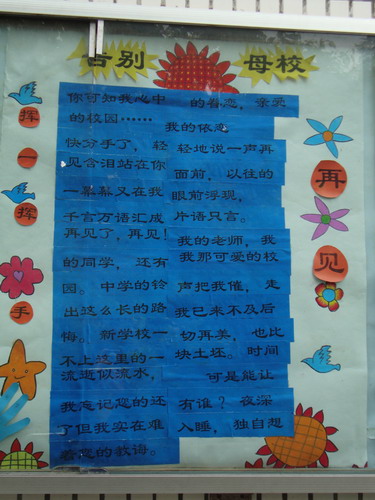 告别 母校
挥一挥手
再见
你可知我心中的眷恋，亲爱
的校园……
我的依恋
快分手了，轻轻地说一声再
见含泪站在你面前，以往的
一幕幕又在我眼前浮现，
千言万语汇成片语只言。
再见了，再见！我的老师，我
的同学，还有我那可爱的校
园。中学的铃声把我催，走
出这么长的路我已来不及后
悔。新学校一切再美，也比
不上这里的一块土坯。时间
流逝似流水，可是能让
我忘记您的还有谁？夜深
了但我实在难入睡，独自想
着您的教诲。